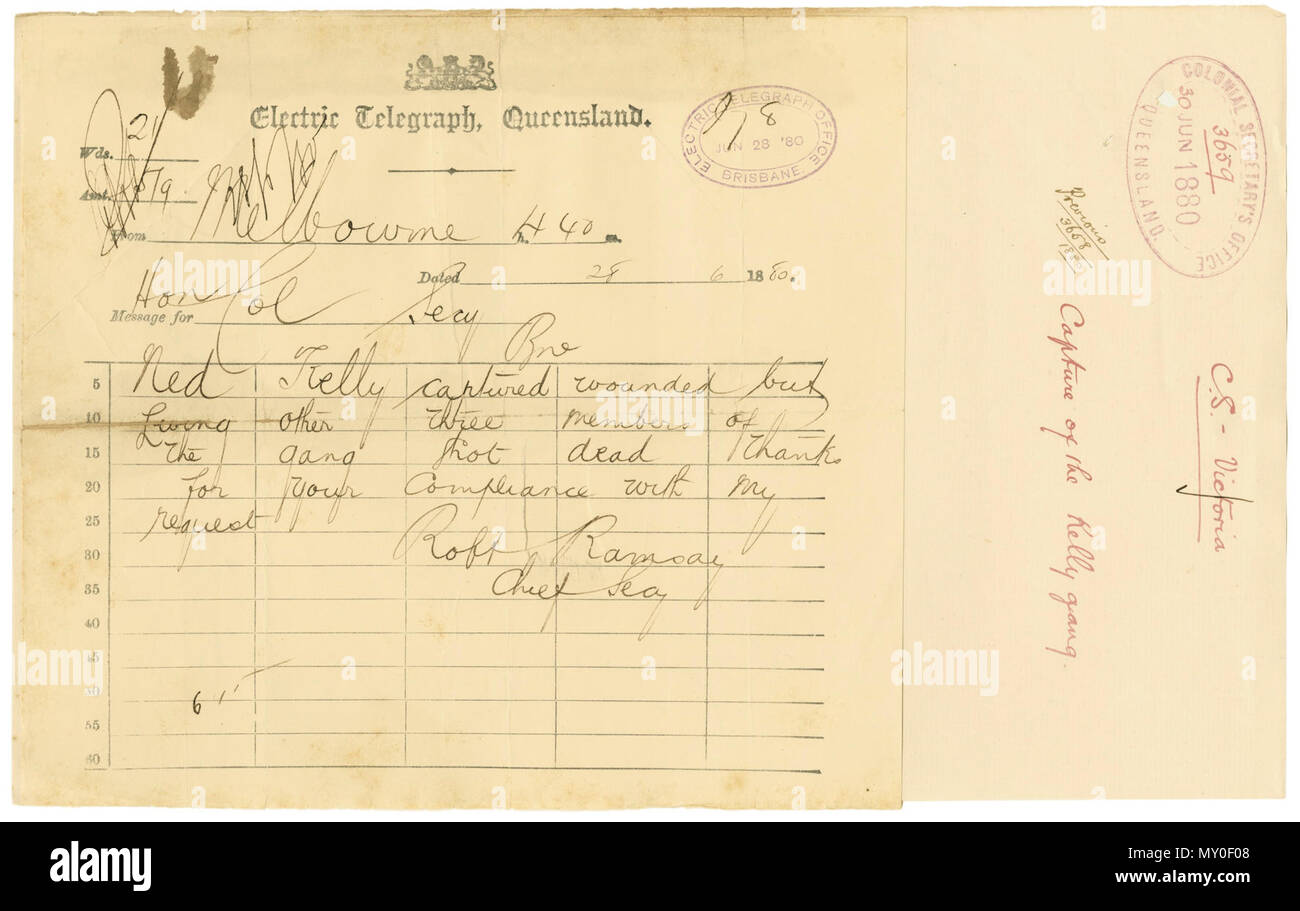 Electric Telegraph, Queensland.
ELECTRIC TELEGRAPH OFFICE
JUN 28 '80
BRISBANE.
Wds. 21
Amt.
From Melbourne h. 4 40 m.
Dated 28 6 1880.
Message for Hon Col Secy
Bne
5 Ned Kelly captured wounded but
10 Living other three members of
15 the gang shot dead Thanks
20 for your compliance with my
25 request
30 Robt Ramsay
35 Chief Secy
40
45
50 6 1
55
60
COLONIAL SECRETARY'S OFFICE
3659
30 JUN 1880
QUEENSLAND.
Previous
3658
1880
C.S. - Victoria
Capture of the Kelly gang.
alamy
alamy
alamy
Image ID: MY0F08
www.alamy.com